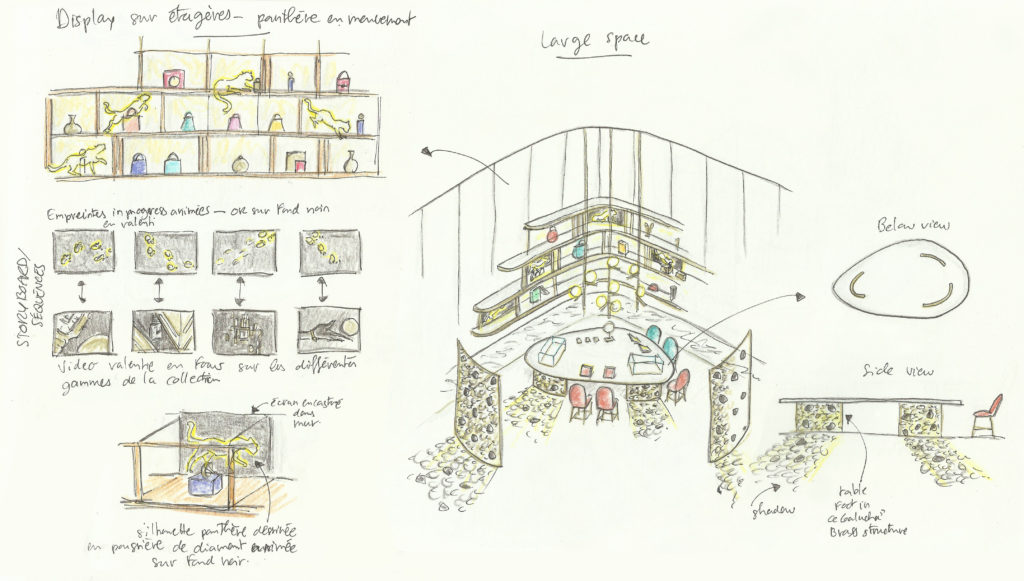 Display sur étagères – panthère en mouvement
Large space
Empreintes in progress animées – or sur fond noir
en
STORYBOARD/
SÉQUENCES
Video en Focus sur les différentes
gammes de la collection
écran encastré
dans
mur.
silhouette panthère dessinée
en poussière de diamant animée
sur Fond noir.
Below view
Side view
shadow
table
Foot in
Brass structure